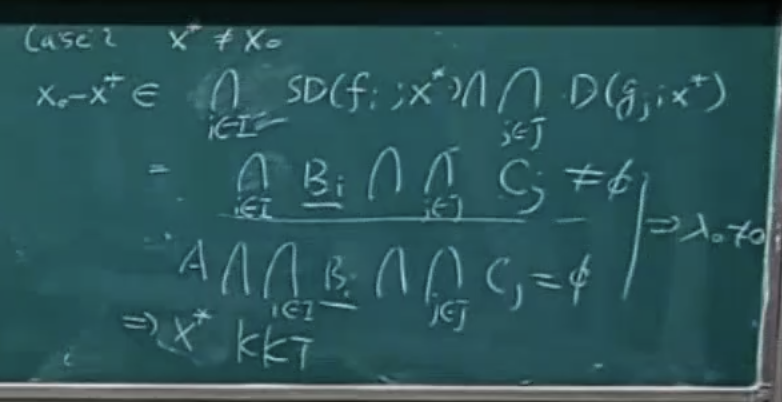 Case 2 x* ≠ x₀
x₀-x* ∈ ⋂_{i∈I} SD(f_i; x*) ∩ ⋂_{j∈J} D(g_j; x*)
= ⋂_{i∈I} B_i ∩ ⋂_{j∈J} C_j ≠ ∅
A ∩ ⋂_{i∈I} B_i ∩ ⋂_{j∈J} C_j = ∅
⇒ λ₀ ≠ 0
⇒ x* KKT